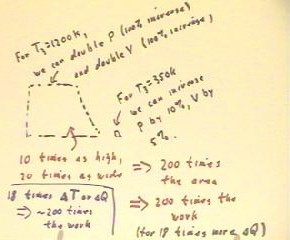 For T₃=1200k,
we can double P (100% increase)
and double V (100% increase)
For T₃=350k
we can increase
P by 10%, V by
5%.
10 times as high,
20 times as wide
⇒ 200 times
the area
18 times ΔT or ΔQ
⇒ ~200 times
the work
⇒ 200 times the
work
(for 18 times more ΔQ)